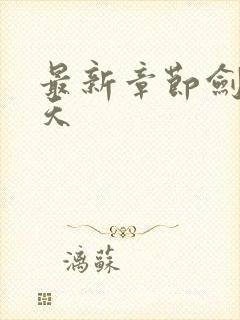 最新章節劍
天
漓蘇